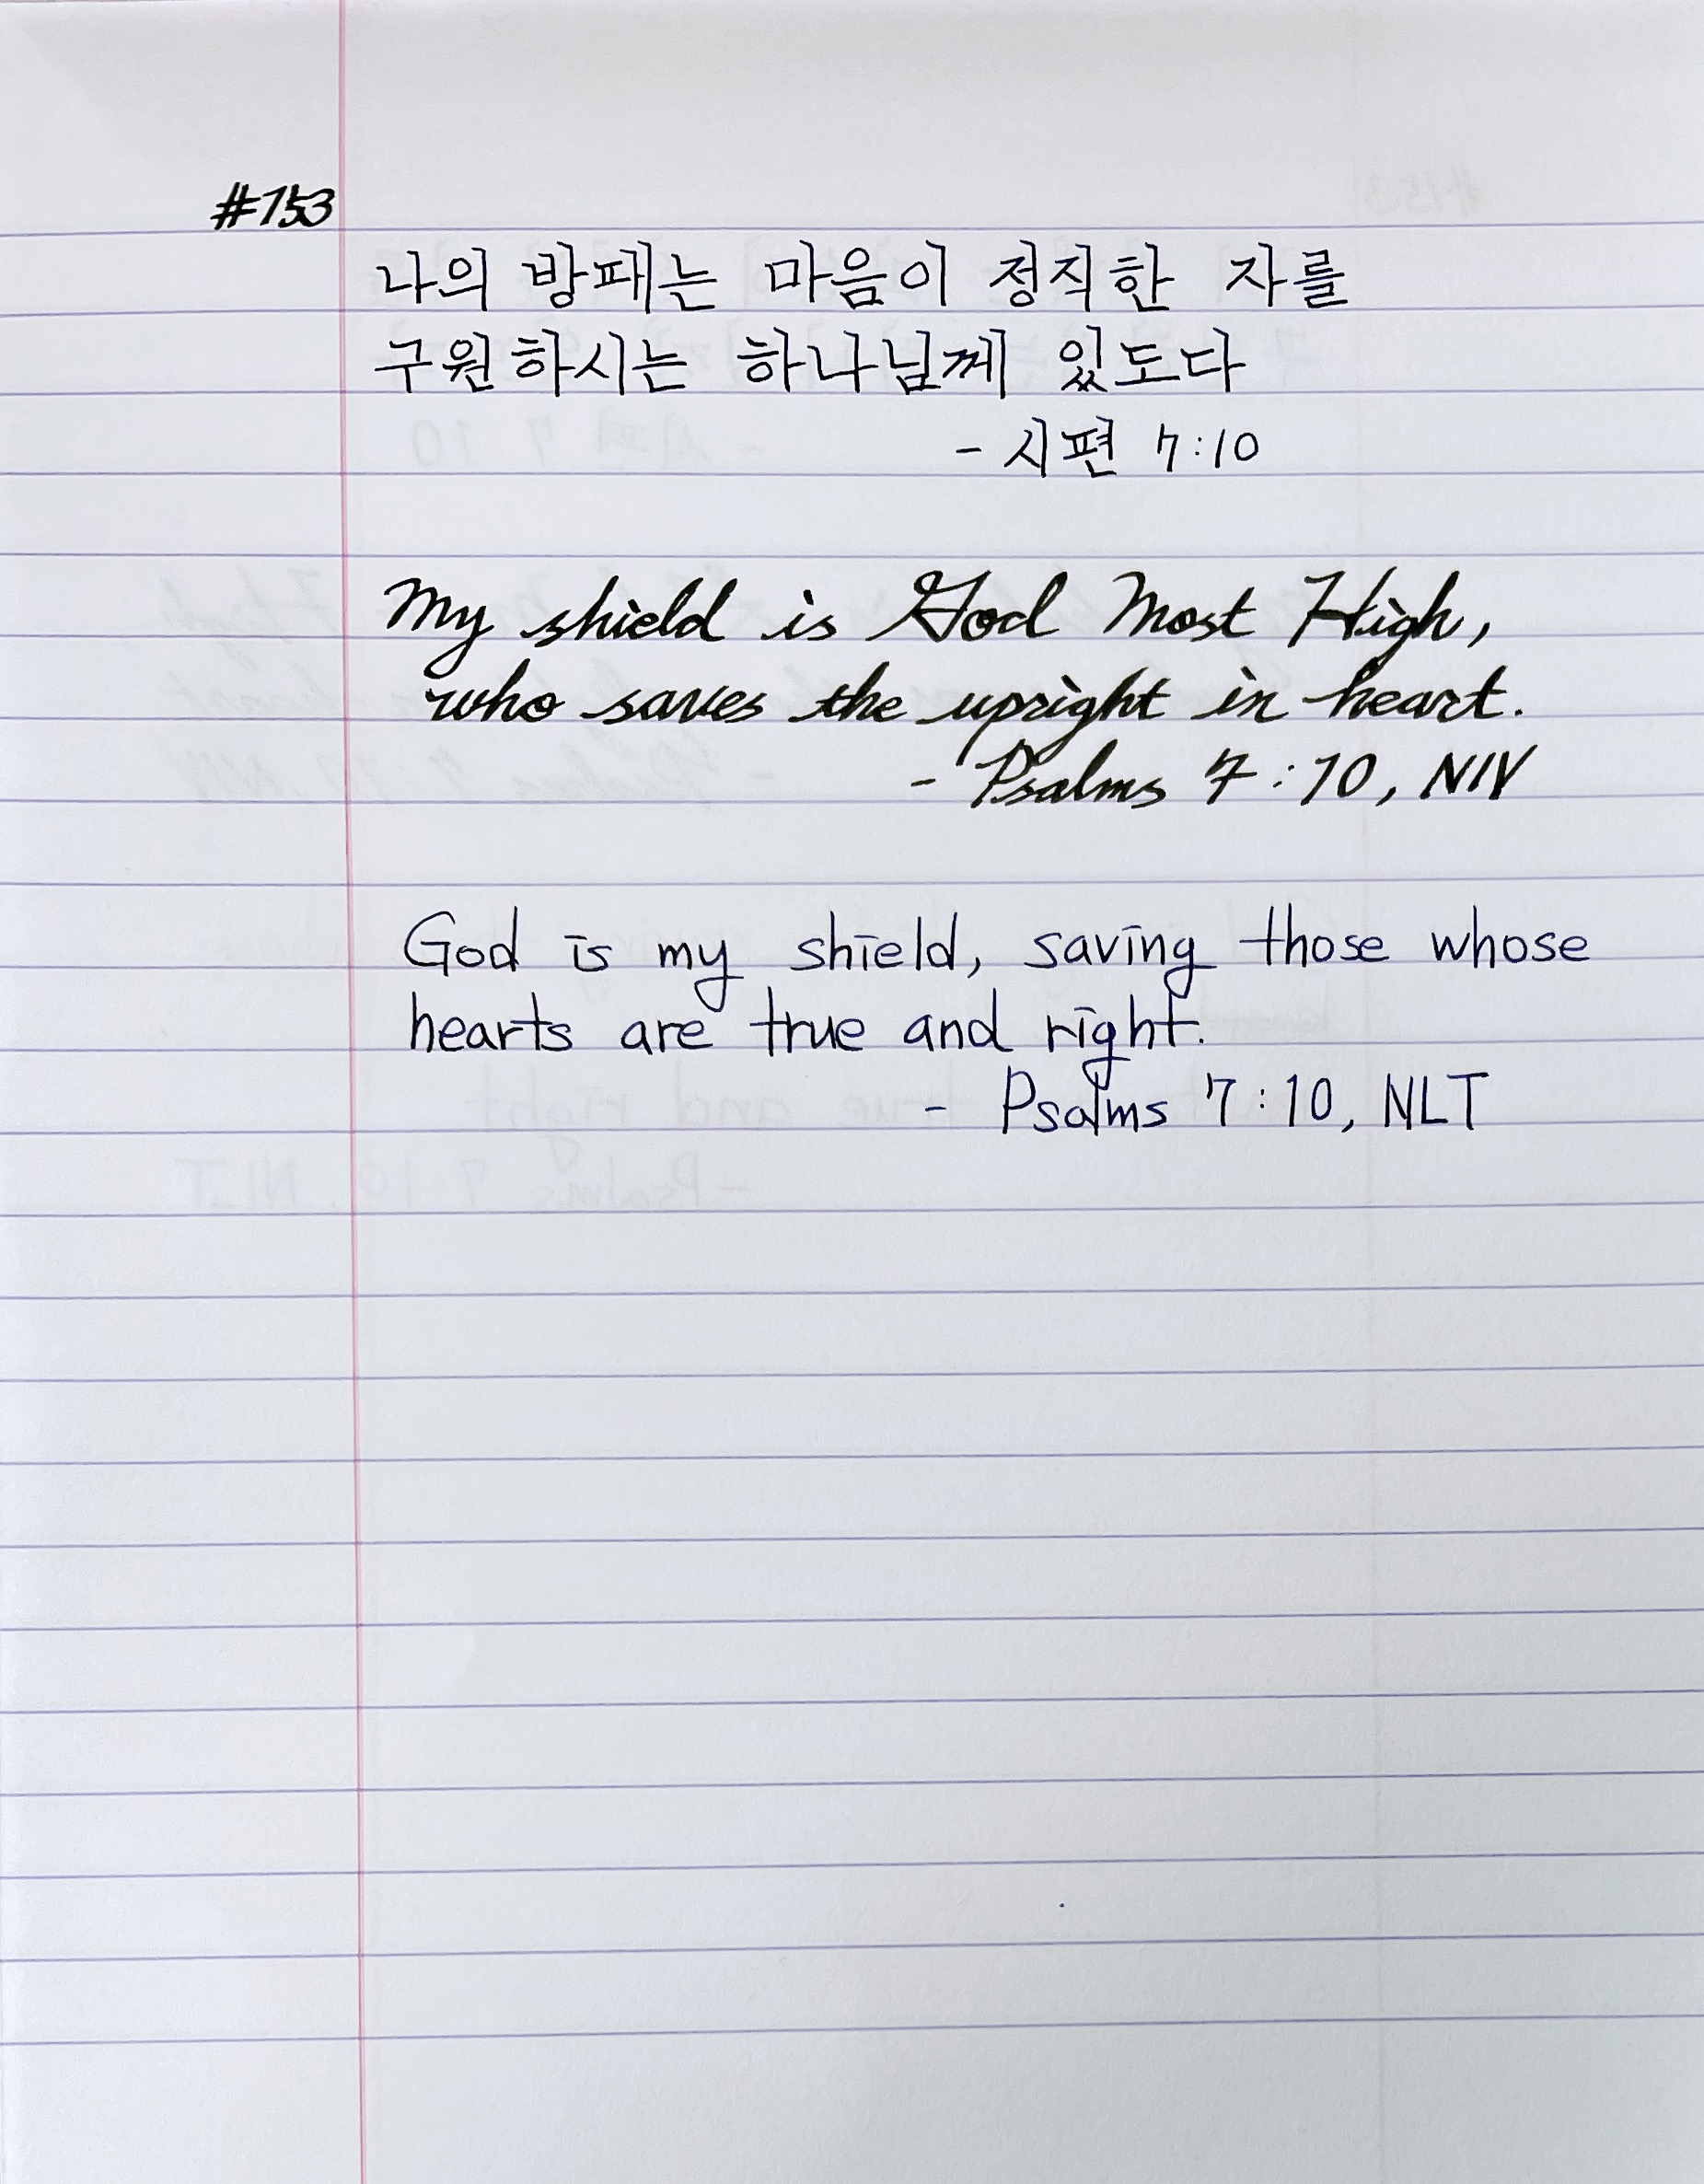 #153
나의 방패는 마음이 정직한 자를
구원하시는 하나님께 있도다
- 시편 7:10
My shield is God Most High,
who saves the upright in heart.
- Psalms 7:10, NIV
God is my shield, saving those whose
hearts are true and right.
- Psalms 7:10, NLT